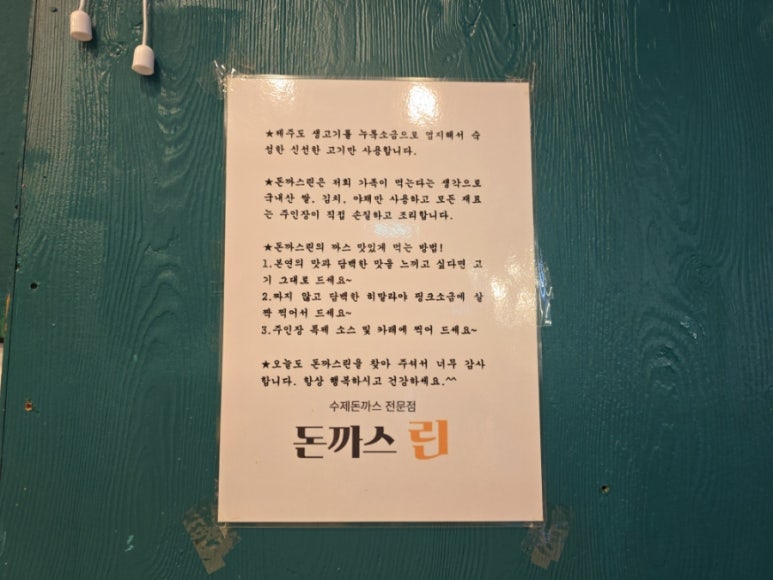 ★제주도 생고기를 누룩소금으로 염지해서 숙
성한 신선한 고기만 사용합니다.
★돈까스린은 저희 가족이 먹는다는 생각으로
국내산 쌀, 김치, 야채만 사용하고 모든 재료
는 주인장이 직접 손질하고 조리합니다.
★돈까스린의 까스 맛있게 먹는 방법!
1.본연의 맛과 담백한 맛을 느끼고 싶다면 고
기 그대로 드세요~
2.짜지 않고 담백한 히말라야 핑크소금에 살
짝 찍어서 드세요~
3.주인장 특제 소스 및 카레에 찍어 드세요~
★오늘도 돈까스린을 찾아 주셔서 너무 감사
합니다. 항상 행복하시고 건강하세요.^^
수제돈까스 전문점
돈까스 린